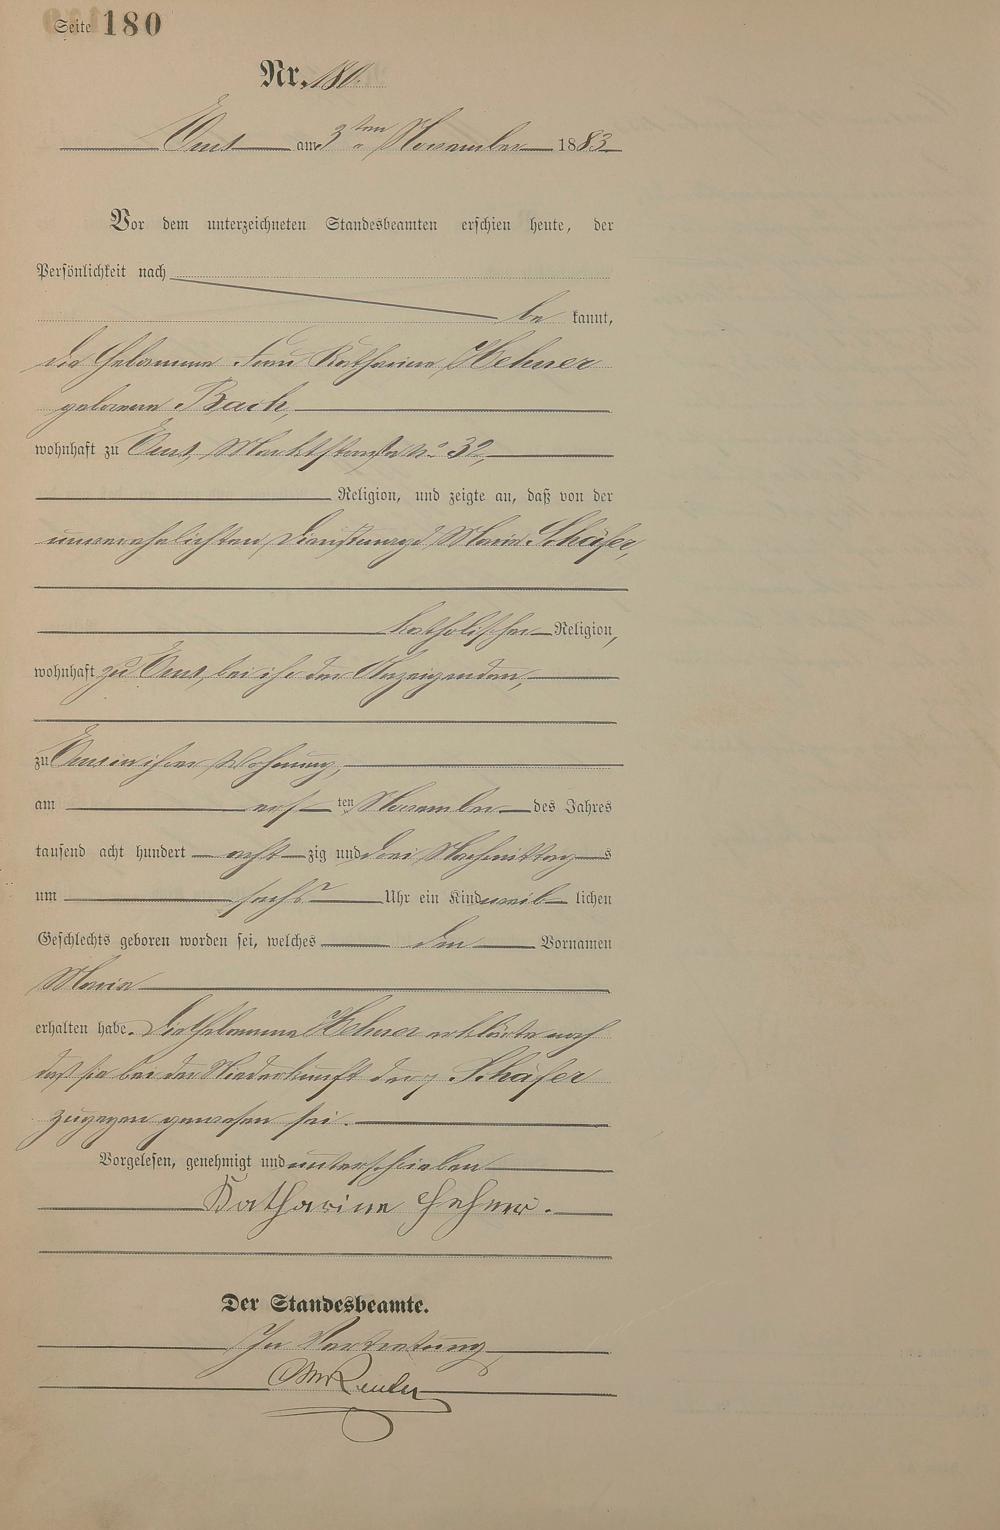 Seite 180
Nr. 180.
Ems am 3ten November 1883
Vor dem unterzeichneten Standesbeamten erschien heute, der
Persönlichkeit nach
be kannt,
die Hebamme Frau Katharina Hehner
geborene Bach,
wohnhaft zu Ems, Marktstraße No 32,
Religion, und zeigte an, daß von der
unverehelichten Dienstmagd Maria Schäfer,
katholischer Religion,
wohnhaft zu Ems, bei ihr der Anzeigenden,
zu Ems in ihrer Wohnung,
am ersten November des Jahres
tausend acht hundert acht zig und drei Nachmittags
um sechs Uhr ein Kind weib lichen
Geschlechts geboren worden sei, welches den Vornamen
Maria
erhalten habe. Die Hebamme Hehner erklärte noch
daß sie bei der Niederkunft der Schäfer
zugegen gewesen sei.
Vorgelesen, genehmigt und unterschrieben
Katharine Hehner.
Der Standesbeamte.
In Vertretung